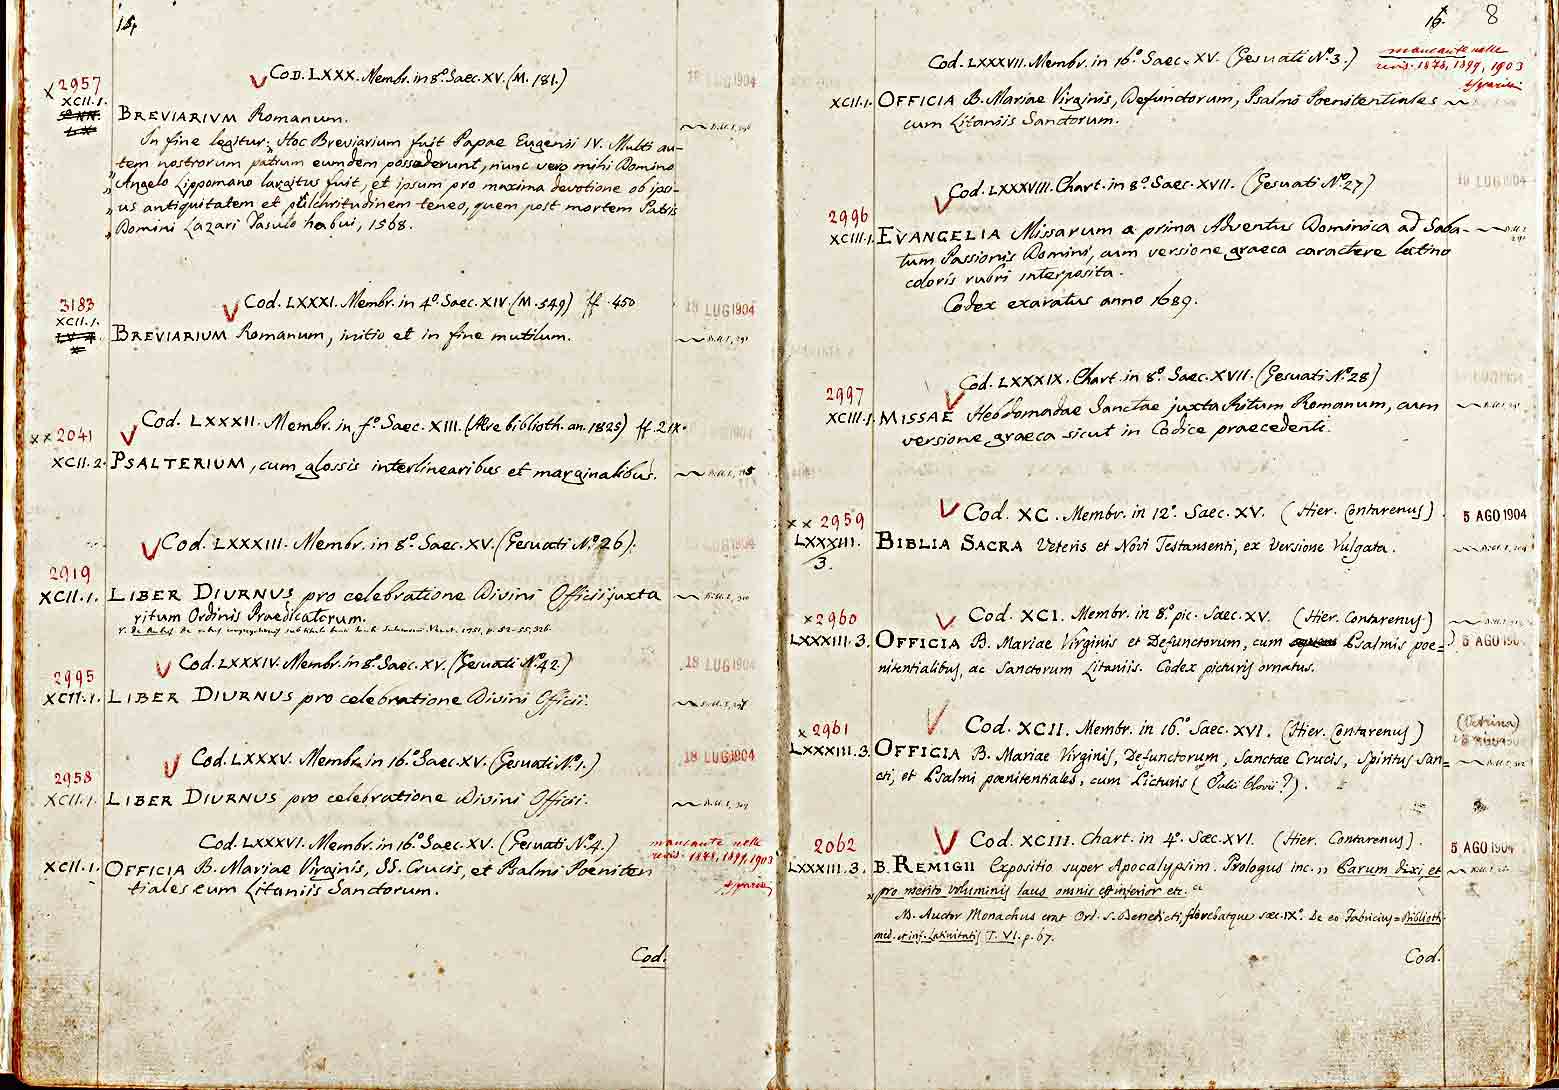 14
Cod. LXXX. Membr. in 8º. Saec. XV. (M. 181.)
18 LUG 1904
x 2957
XCII. 1.
BREVIARIVM Romanum.
In fine legitur: Hoc Breviarium fuit Papae Eugenii IV. Multi au-
„tem nostrorum patrum eumdem possederunt, nunc vero mihi Domino
„Angelo Lippomano largitus fuit, et ipsum pro maxima devotione ob ipsi-
„us antiquitatem et pulchritudinem teneo, quem post mortem Patris
„Domini Lazari Pasulo habui, 1568.
3183
Cod. LXXXI. Membr. in 4º. Saec. XIV. (M. 549) ff. 450
18 LUG 1904
XCII. 1.
BREVIARIUM Romanum, initio et in fine mutilum.
Cod. LXXXII. Membr. in fº. Saec. XIII. (Aere biblioth. an. 1825) ff. 218.
x x 2041
XCII. 2.
PSALTERIUM, cum glossis interlinearibus et marginalibus.
Cod. LXXXIII. Membr. in 8º. Saec. XV. (Gesuati Nº. 26).
18 LUG 1904
2919
XCII. 1.
LIBER DIURNUS pro celebratione Divini Officii juxta
ritum Ordinis Praedicatorum.
Cod. LXXXIV. Membr. in 8º. Saec. XV. (Gesuati Nº. 42)
18 LUG 1904
2995
XCII. 1.
LIBER DIURNUS pro celebratione Divini Officii.
Cod. LXXXV. Membr. in 16º. Saec. XV. (Gesuati Nº. 1.)
18 LUG 1904
2958
XCII. 1.
LIBER DIURNUS pro celebratione Divini Officii.
Cod. LXXXVI. Membr. in 16º. Saec. XV. (Gesuati Nº. 4.)
mancante nelle
revis. 1878, 1899, 1903
XCII. 1.
OFFICIA B. Mariae Virginis, SS. Crucis, et Psalmi Poeniten
tiales cum Litaniis Sanctorum.
Cod.
16. 8
Cod. LXXXVII. Membr. in 16º. Saec. XV. (Gesuati Nº. 3.)
mancante nelle
revis. 1878, 1899, 1903
XCII. 1.
OFFICIA B. Mariae Virginis, Defunctorum, Psalmi Poenitentiales
cum Litaniis Sanctorum.
Cod. LXXXVIII. Chart. in 8º. Saec. XVII. (Gesuati Nº. 27)
18 LUG 1904
2996
XCIII. 1.
EVANGELIA Missarum a prima Adventus Dominica ad Saba-
tum Passionis Domini, cum versione graeca caractere latino
coloris rubri interposita.
Codex exaratus anno 1689.
Cod. LXXXIX. Chart. in 8º. Saec. XVII. (Gesuati Nº. 28)
2997
XCIII. 1.
MISSAE Hebdomadae Sanctae juxta Ritum Romanum, cum
versione graeca sicut in Codice praecedenti.
Cod. XC. Membr. in 12º. Saec. XV. (Hier. Contarenus).
5 AGO 1904
x x 2959
LXXXIII.
3.
BIBLIA SACRA Veteris et Novi Testamenti, ex Versione Vulgata.
Cod. XCI. Membr. in 8º. pic. Saec. XV. (Hier. Contarenus)
x 2960
LXXXIII. 3.
OFFICIA B. Mariae Virginis et Defunctorum, cum Psalmis poe=
5 AGO 190
nitentialibus, ac Sanctorum Litaniis. Codex picturis ornatus.
Cod. XCII. Membr. in 16º. Saec. XVI. (Hier. Contarenus)
(Vetrina)
x 2961
LXXXIII. 3.
OFFICIA B. Mariae Virginis, Defunctorum, Sanctae Crucis, Spiritus San=
cti, et Psalmi poenitentiales, cum Picturis (Julii Clovii?).
Cod. XCIII. Chart. in 4º. Saec. XVI. (Hier. Contarenus).
5 AGO 1904
2062
LXXXIII. 3.
B. REMIGII Expositio super Apocalypsim. Prologus inc. „ Parum dixi, et
„pro merito voluminis laus omnis est inferior etc. “
NB. Auctor Monachus erat Ord. S. Benedicti, florebatque saec. IXº. De eo Fabricius = Biblioth.
med. et inf. Latinitatis T. VI. p. 67.
Cod.